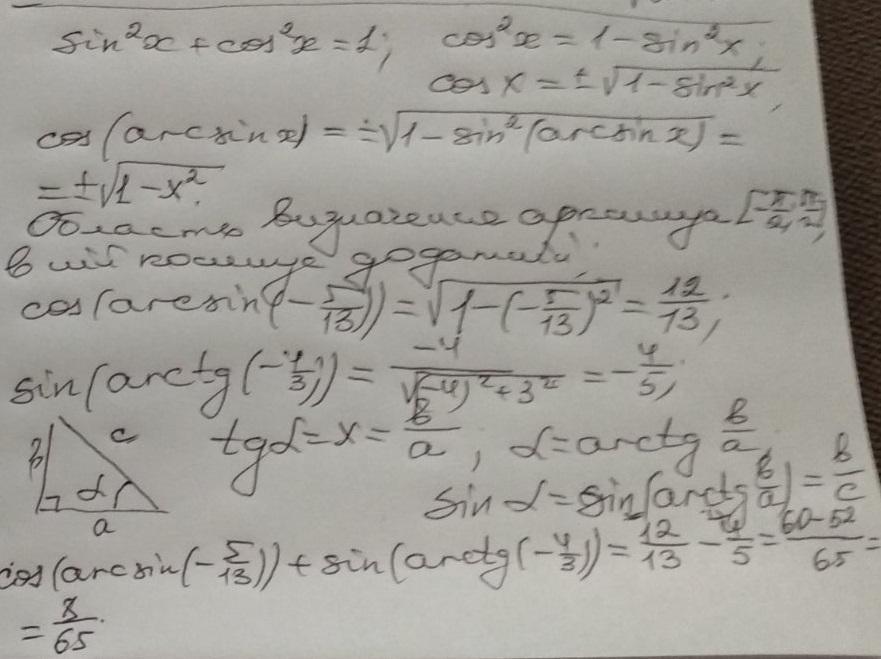 sin²x + cos²x = 1; cos²x = 1 - sin²x;
cos x = ± √(1 - sin²x),
cos(arcsin x) = ±√(1 - sin²(arcsin x)) =
= ±√(1 - x²).
Область визначення арксинуса [-π/2, π/2],
в ній косинус додатній.
cos(arcsin(-5/13)) = √(1 - (-5/13)²) = 12/13;
sin(arctg(-4/3)) = -4/√((-4)² + 3²) = -4/5;
в c tgα = x = в/a, α = arctg в/a,
α
a sin α = sin(arctg в/a) = в/c
cos(arcsin(-5/13)) + sin(arctg(-4/3)) = 12/13 - 4/5 = (60-52)/65 =
= 8/65.